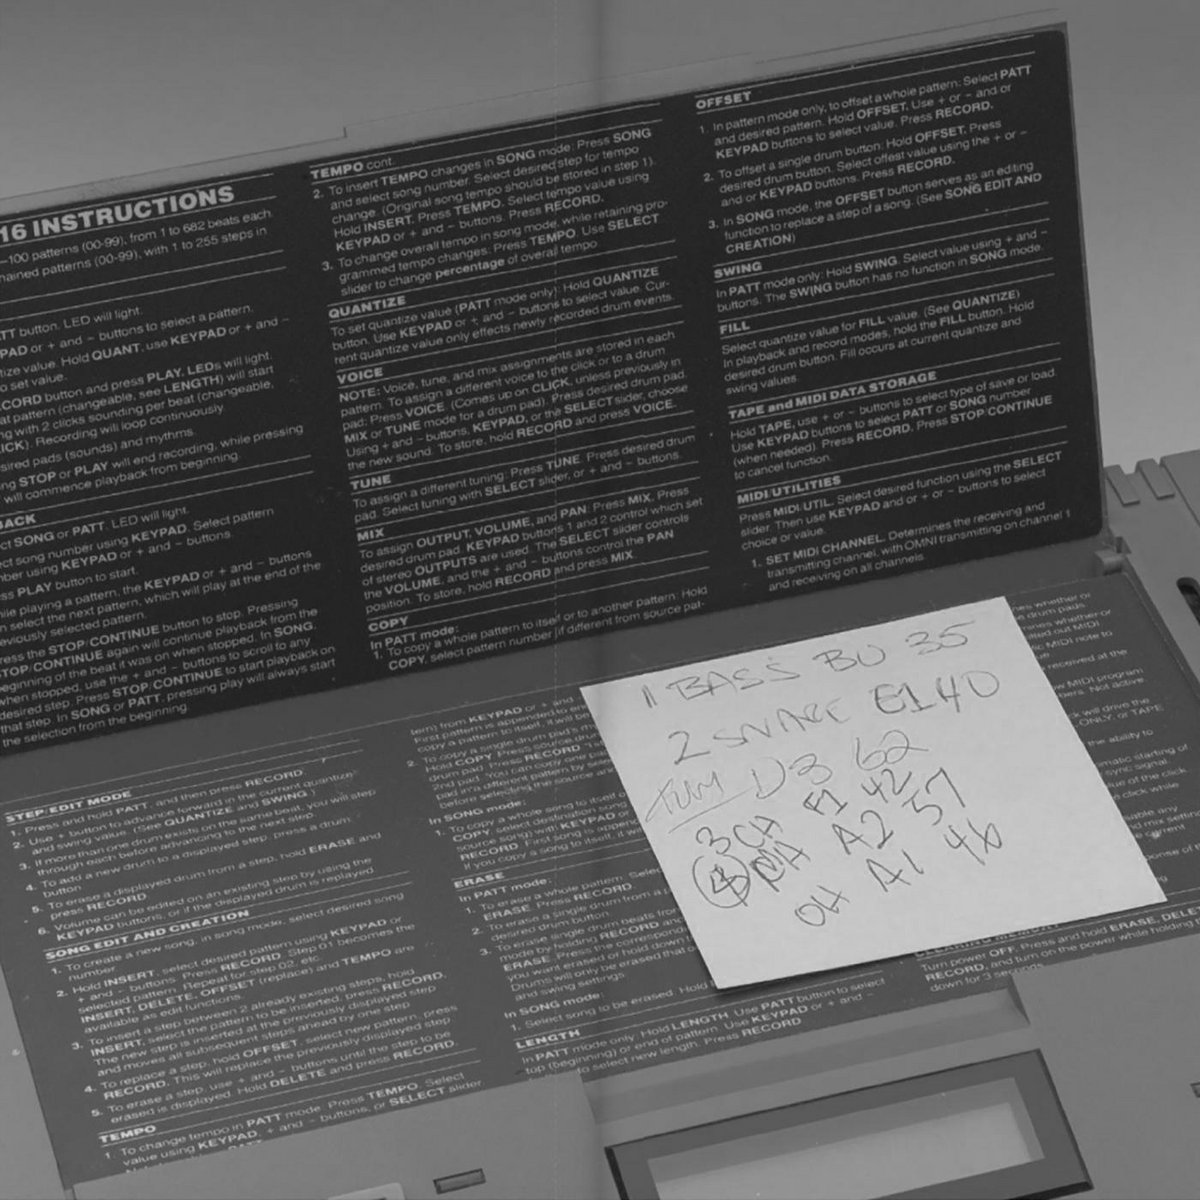 16 INSTRUCTIONS
–100 patterns (00-99), from 1 to 682 beats each.
hained patterns (00-99), with 1 to 255 steps in
TT button. LED will light.
PAD or + and – buttons to select a pattern.
tize value. Hold QUANT, use KEYPAD or + and –
o set value.
CORD button and press PLAY. LEDs will light.
at pattern (changeable, see LENGTH) will start
ng with 2 clicks sounding per beat (changeable,
ICK). Recording will loop continuously.
sired pads (sounds) and rhythms.
ng STOP or PLAY will end recording, while pressing
will commence playback from beginning.
BACK
ct SONG or PATT. LED will light.
ct song number using KEYPAD. Select pattern
ber using KEYPAD or + and – buttons.
ss PLAY button to start.
ile playing a pattern, the KEYPAD or + and – buttons
n select the next pattern, which will play at the end of the
eviously selected pattern.
ress the STOP/CONTINUE button to stop. Pressing
TOP/CONTINUE again will continue playback from the
eginning of the beat it was on when stopped. In SONG,
when stopped, use the + and – buttons to scroll to any
desired step. Press STOP/CONTINUE to start playback on
that step. In SONG or PATT, pressing play will always start
the selection from the beginning.
TEMPO cont.
2. To insert TEMPO changes in SONG mode: Press SONG
and select song number. Select desired step for tempo
change. (Original song tempo should be stored in step 1).
Hold INSERT. Press TEMPO. Select tempo value using
KEYPAD or + and – buttons. Press RECORD.
3. To change overall tempo in song mode, while retaining pro-
grammed tempo changes: Press TEMPO. Use SELECT
slider to change percentage of overall tempo.
QUANTIZE
To set quantize value (PATT mode only): Hold QUANTIZE
button. Use KEYPAD or + and – buttons to select value. Cur-
rent quantize value only effects newly recorded drum events.
VOICE
NOTE: Voice, tune, and mix assignments are stored in each
pattern. To assign a different voice to the click or to a drum
pad: Press VOICE. (Comes up on CLICK, unless previously in
MIX or TUNE mode for a drum pad). Press desired drum pad.
Using + and – buttons, KEYPAD, or the SELECT slider, choose
the new sound. To store, hold RECORD and press VOICE.
TUNE
To assign a different tuning: Press TUNE. Press desired drum
pad. Select tuning with SELECT slider, or + and – buttons.
MIX
To assign OUTPUT, VOLUME, and PAN: Press MIX. Press
desired drum pad. KEYPAD buttons 1 and 2 control which set
of stereo OUTPUTS are used. The SELECT slider controls
the VOLUME, and the + and – buttons control the PAN
position. To store, hold RECORD and press MIX
COPY
In PATT mode:
1. To copy a whole pattern to itself or to another pattern: Hold
COPY, select pattern number (if different from source pat-
OFFSET
1. In pattern mode only, to offset a whole pattern: Select PATT
and desired pattern. Hold OFFSET. Use + or – and or
KEYPAD buttons to select value. Press RECORD.
2. To offset a single drum button: Hold OFFSET. Press
desired drum button. Select offest value using the + or –
and or KEYPAD buttons. Press RECORD.
3. In SONG mode, the OFFSET button serves as an editing
function to replace a step of a song. (See SONG EDIT AND
CREATION)
SWING
In PATT mode only: Hold SWING. Select value using + and –
buttons. The SWING button has no function in SONG mode.
FILL
Select quantize value for FILL value. (See QUANTIZE)
In playback and record modes, hold the FILL button. Hold
desired drum button. Fill occurs at current quantize and
swing values.
TAPE and MIDI DATA STORAGE
Hold TAPE, use + or – buttons to select type of save or load.
Use KEYPAD buttons to select PATT or SONG number
(when needed). Press RECORD. Press STOP/CONTINUE
to cancel function.
MIDI/UTILITIES
Press MIDI UTIL. Select desired function using the SELECT
slider. Then use KEYPAD and or + or – buttons to select
choice or value.
1. SET MIDI CHANNEL. Determines the receiving and
transmitting channel, with OMNI transmitting on channel 1
and receiving on all channels.
STEP/EDIT MODE
1. Press and hold PATT, and then press RECORD.
2. Use + button to advance forward in the current quantize
and swing value. (See QUANTIZE and SWING.)
3. If more than one drum exists on the same beat, you will step
through each before advancing to the next step
4. To add a new drum to a displayed step, press a drum
button
5. To erase a displayed drum from a step, hold ERASE and
press RECORD
6. Volume can be edited on an existing step by using the
KEYPAD buttons, or if the displayed drum is replayed.
SONG EDIT AND CREATION
1. To create a new song, in song mode, select desired song
number.
2. Hold INSERT, select desired pattern using KEYPAD or
+ and – buttons. Press RECORD. Step 01 becomes the
selected pattern. Repeat for step 02, etc.
INSERT, DELETE, OFFSET (replace) and TEMPO are
available as edit functions.
3. To insert a step between 2 already existing steps, hold
INSERT, select the pattern to be inserted, press RECORD.
The new step is inserted at the previously displayed step
and moves all subsequent steps ahead by one step
4. To replace a step, hold OFFSET, select new pattern, press
RECORD. This will replace the previously displayed step
5. To erase a step, use + and – buttons until the step to be
erased is displayed. Hold DELETE and press RECORD.
TEMPO
1. To change tempo in PATT mode: Press TEMPO. Select
value using KEYPAD, + and – buttons, or SELECT slider
tern) from KEYPAD or + and
First pattern is appended to
copy a pattern to itself, it will be
2. To copy a single drum pad's
Hold COPY. Press source
drum pad. Press RECORD.
2nd pad. You can copy one
pad in a different pattern by
before selecting the source and
In SONG mode:
1. To copy a whole song to itself
COPY, select destination song
source song) with KEYPAD or
RECORD. First song is
If you copy a song to itself, it
ERASE
In PATT mode:
1. To erase a whole pattern: Select
ERASE. Press RECORD.
2. To erase a single drum from a
desired drum button.
3. To erase single drum beats from
mode by holding RECORD
ERASE. Press the corresponding
you want erased or hold down
Drums will only be erased that
and swing settings.
In SONG mode:
1. Select song to be erased. Hold
LENGTH
In PATT mode only: Hold LENGTH. Use PATT button to select
top (beginning) or end of pattern. Use KEYPAD or + and –
to select new length. Press RECORD
Turn power OFF. Press and hold ERASE, DELE
RECORD, and turn on the power while holding
down for 3 seconds
1 BASS B0 35
2 SNARE E1 40
TOM D3 62
3 CH F1 42
A2 57
OH A1 46